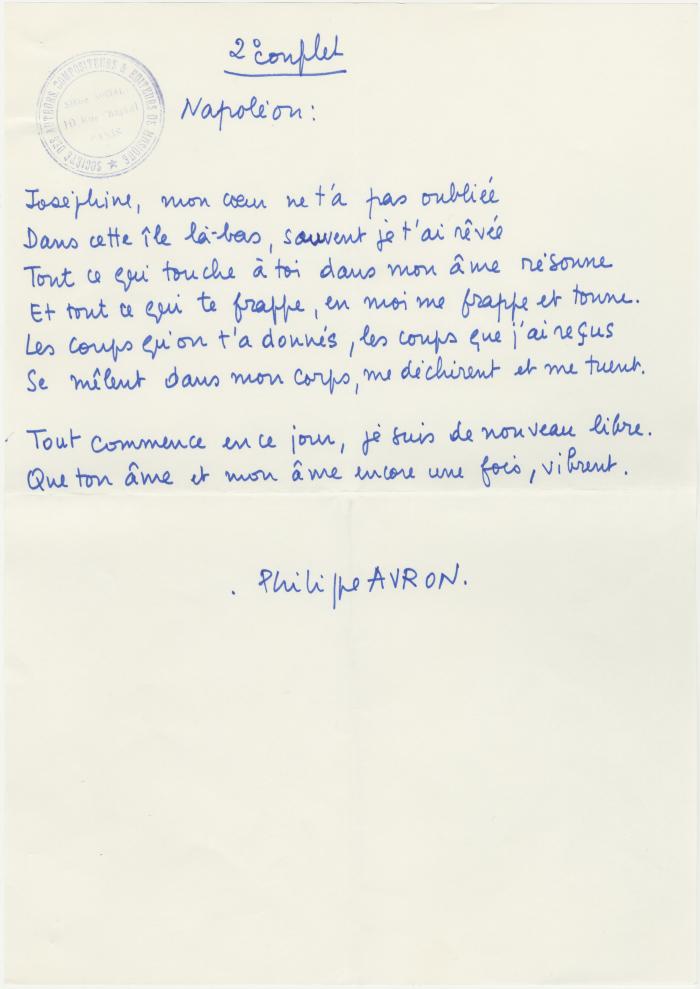 2° couplet
SOCIÉTÉ DES AUTEURS, COMPOSITEURS & EDITEURS DE MUSIQUE
SIÈGE SOCIAL
10, Rue Chaptal
PARIS
Napoléon :
Joséphine, mon cœur ne t'a pas oubliée
Dans cette île là-bas, souvent je t'ai rêvée
Tout ce qui touche à toi dans mon âme résonne
Et tout ce qui te frappe, en moi me frappe et tonne.
Les coups qu'on t'a donnés, les coups que j'ai reçus
Se mêlent dans mon corps, me déchirent et me tuent.
Tout commence en ce jour, je suis de nouveau libre.
Que ton âme et mon âme encore une fois, vibrent.
. Philippe AVRON.